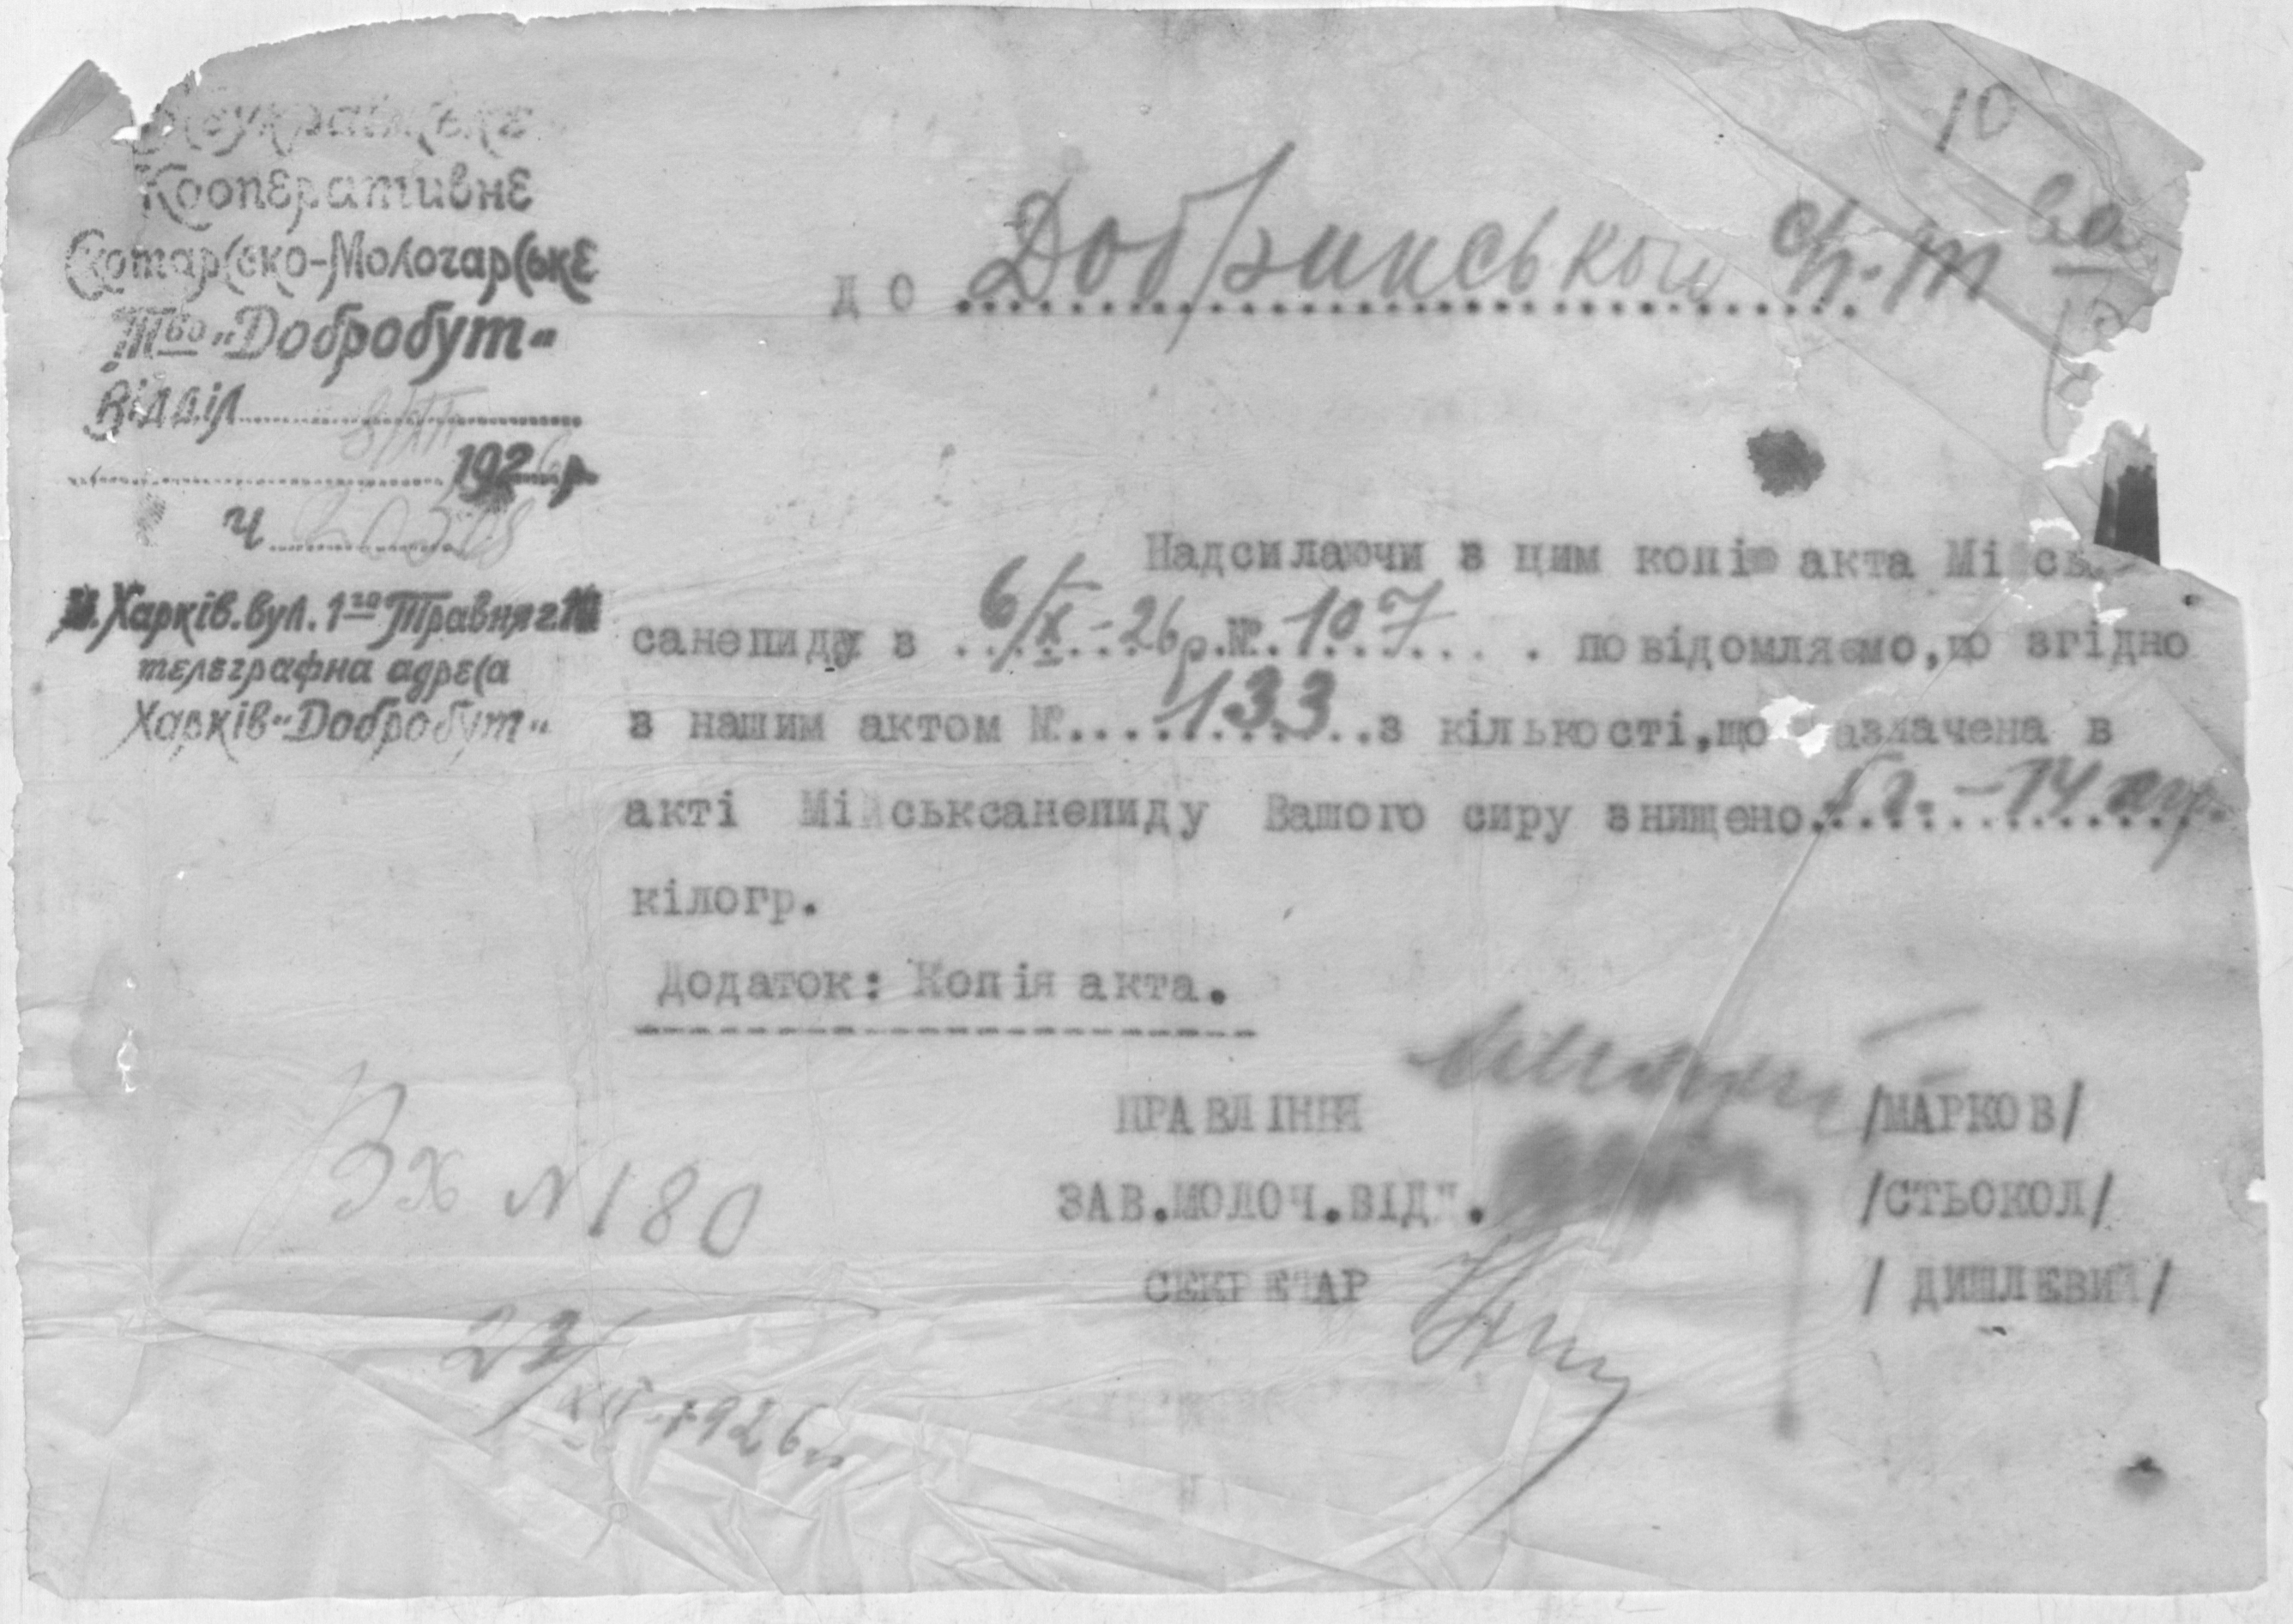 Всеукраїнське
Кооперативне
Скотарсько-Молочарське
Т-во „Добробут“
Відділ
8/XII 1926 р.
Ч
м. Харків. вул. 1го Травня
телеграфна адреса
Харків „Добробут“
10
до Добринського
ва
Надсилаючи з цим копію акта Міськ
санепиду з 6/X-26 р. № 107 повідомляємо, що згідно
з нашим актом № 133 з кількості, що зазначена в
акті Мійськсанепиду Вашого сиру знищено
кілогр.
Додаток: Копія акта.
ПРАВЛІННЯ /МАРКОВ/
ЗАВ.МОЛОЧ.ВІДД. /СТЬОКОЛ/
СЕКРЕТАР / ДИШЛЕВИЙ/
Вх N 180
22/XII-1926 г.